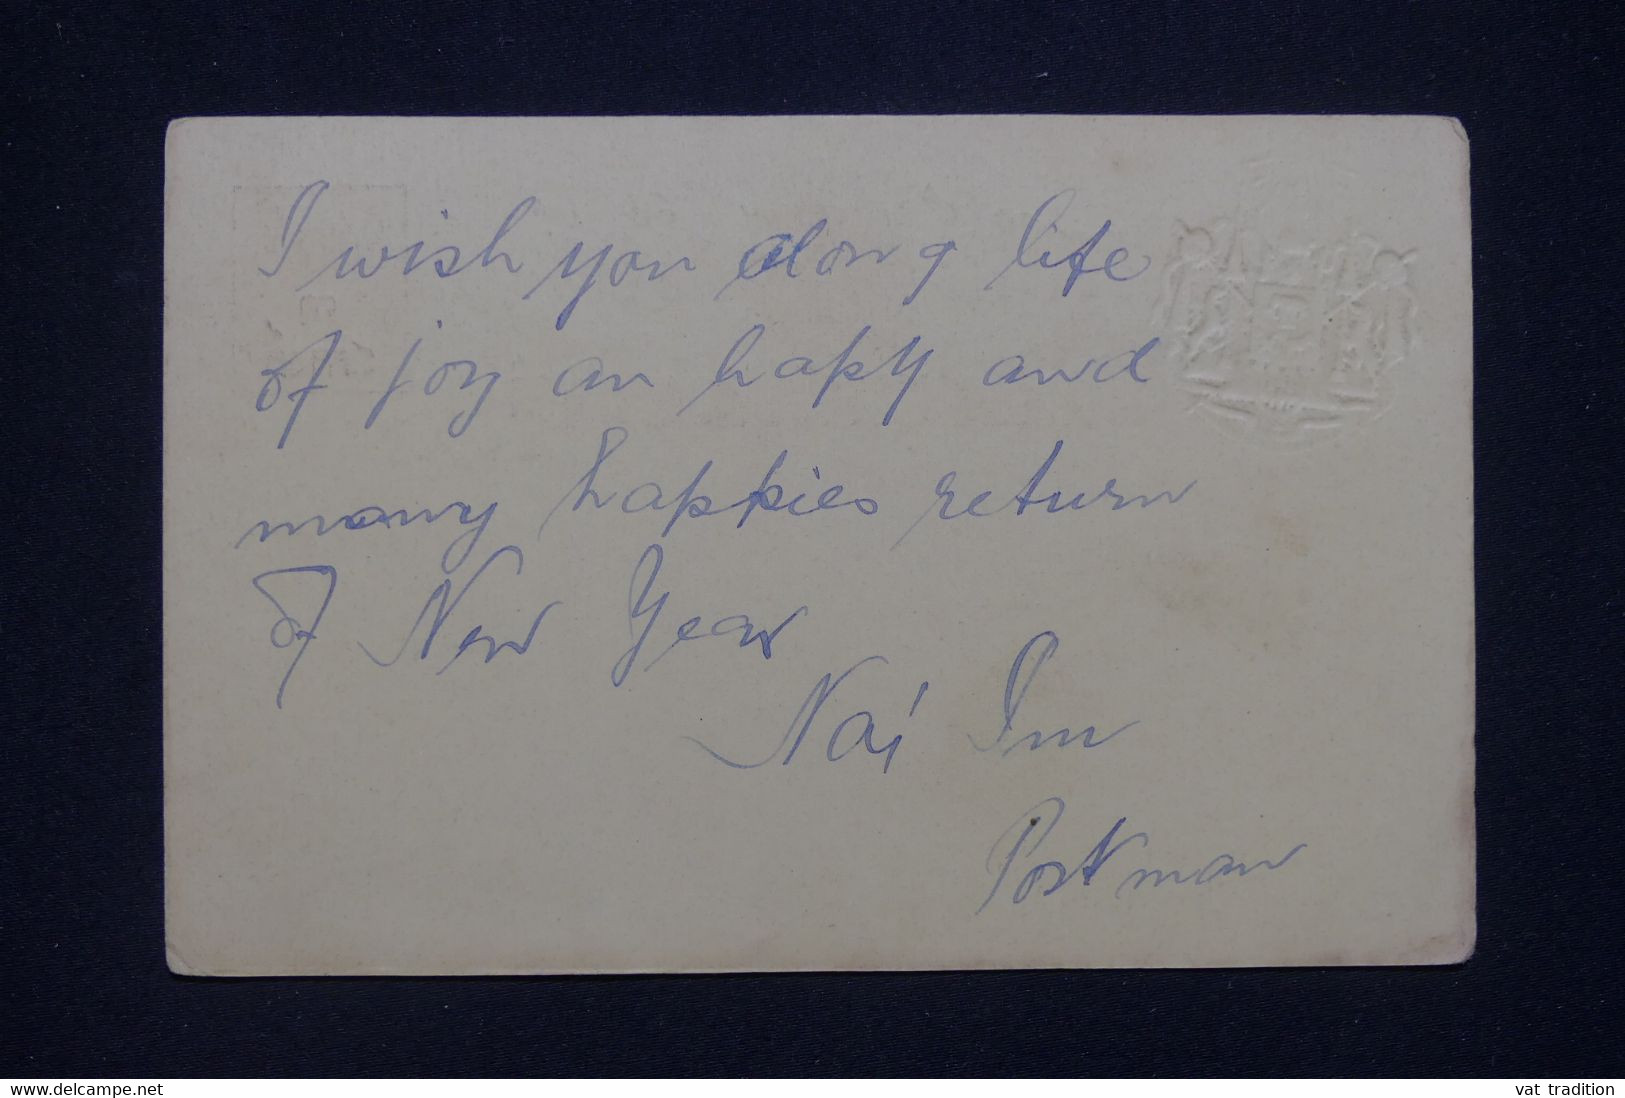 I wish you along life
of joy an hapy and
many happies return
of New Year
Nai Im
Postman
delcampe.net
vat tradition